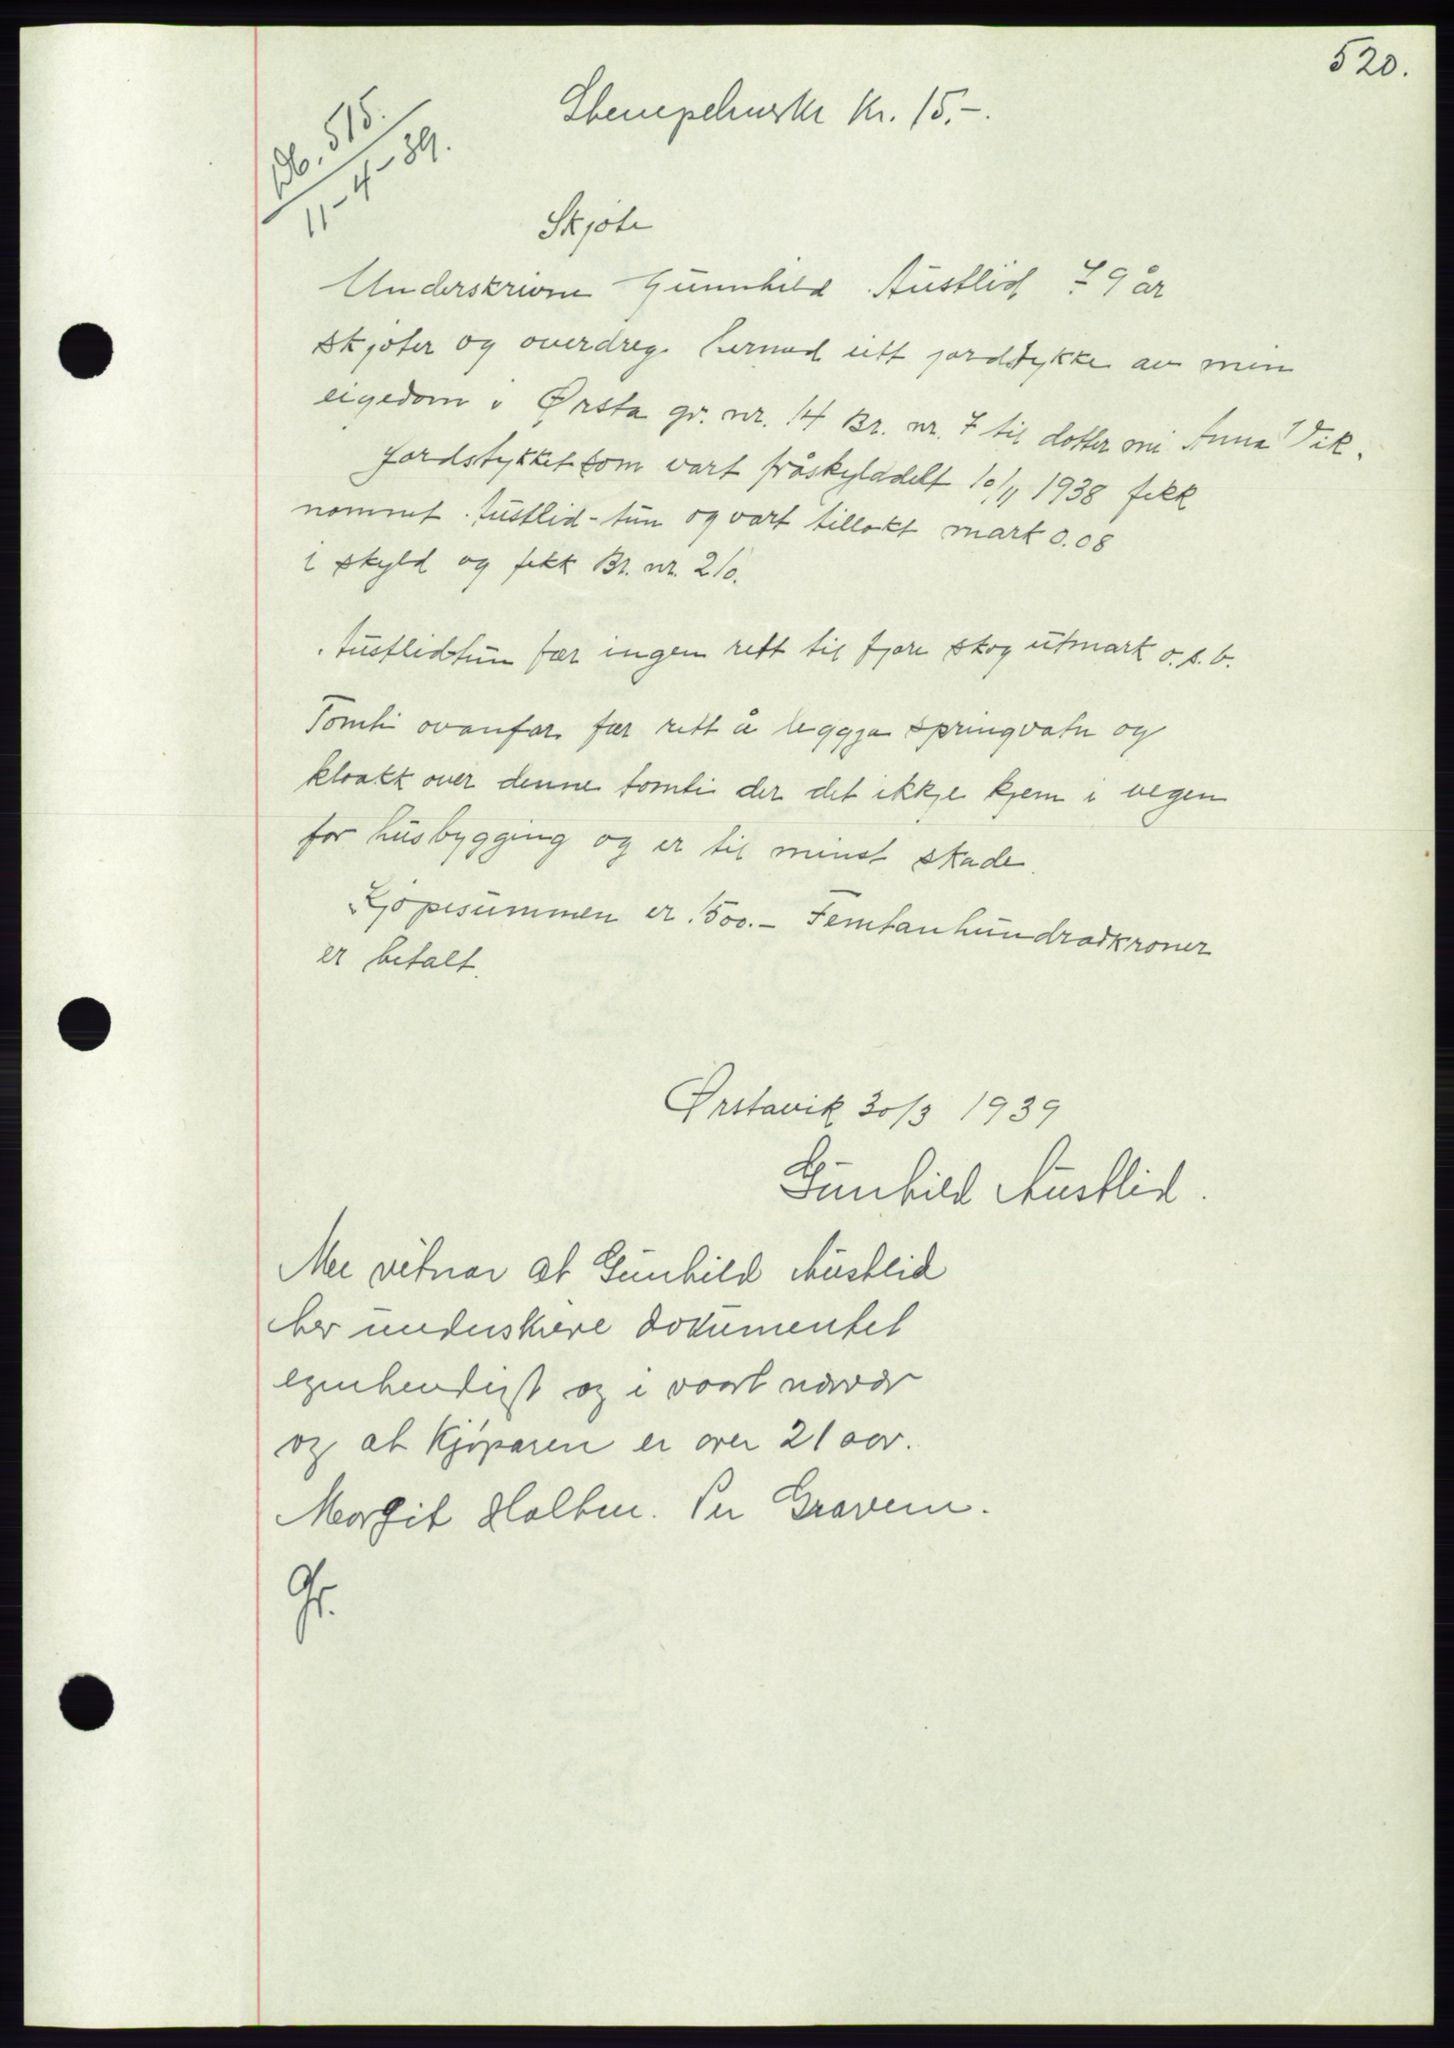 520.
Stempelmerke kr. 15.-.
Db. 515.
11-4-39.
Skjøte
Underskrivne Gunnhild Austlid 79 år
skjøter og overdreg hermed eitt jordstykke av min
eigedom i Ørsta gr. nr. 14 Br. nr. 7 til dotter mi Anna Vik.
Jordstykket som vart fråskylddelt 10/11 1938 fekk
nommet Austlid-tun og vart tillakt mark 0.08
i skyld og fekk Br. nr. 210.
Austlidtun fær ingen rett til fjøre skog utmark o.s.b.
Tomti ovanfor fær rett å leggja springvatn og
kloakk over denne tomti der det ikkje kjem i vegen
for husbygging og er til minst skade.
Kjøpesummen er 1500.- Femtanhundradkroner
er betalt.
Ørstavik 30/3 1939
Gunhild Austlid.
Me vitnar at Gunhild Austlid
her underskreve dokumentet
egenhendigt og i voort nærvær
og at Kjøparen er over 21 aar.
Margit Holten. Per Gravem.
Gr.